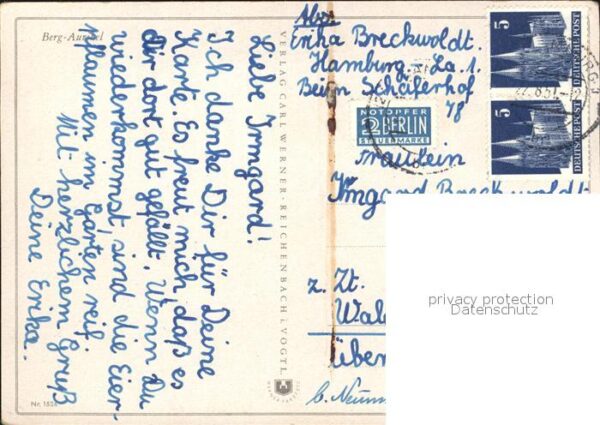 Berg-Aurikel
Liebe Irmgard!
Ich danke Dir für Deine
Karte. Es freut mich, daß es
Dir dort gut gefällt. Wenn Du
wiederkommst, sind die Eier-
pflaumen im Garten reif.
Mit herzlichem Gruß
Deine Erika.
Nr. 1526
VERLAG CARL WERNER · REICHENBACH I. VOGTL.
Abs.
Erika Breckwoldt.
Hamburg-La. 1.
Beim Schäferhof
78
NOTOPFER
2 BERLIN
STEUERMARKE
5
DEUTSCHE POST
5
DEUTSCHE POST
Fräulein
Irmgard Breckwoldt
z. Zt.
Wal
Über
b. Neum
privacy protection
Datenschutz